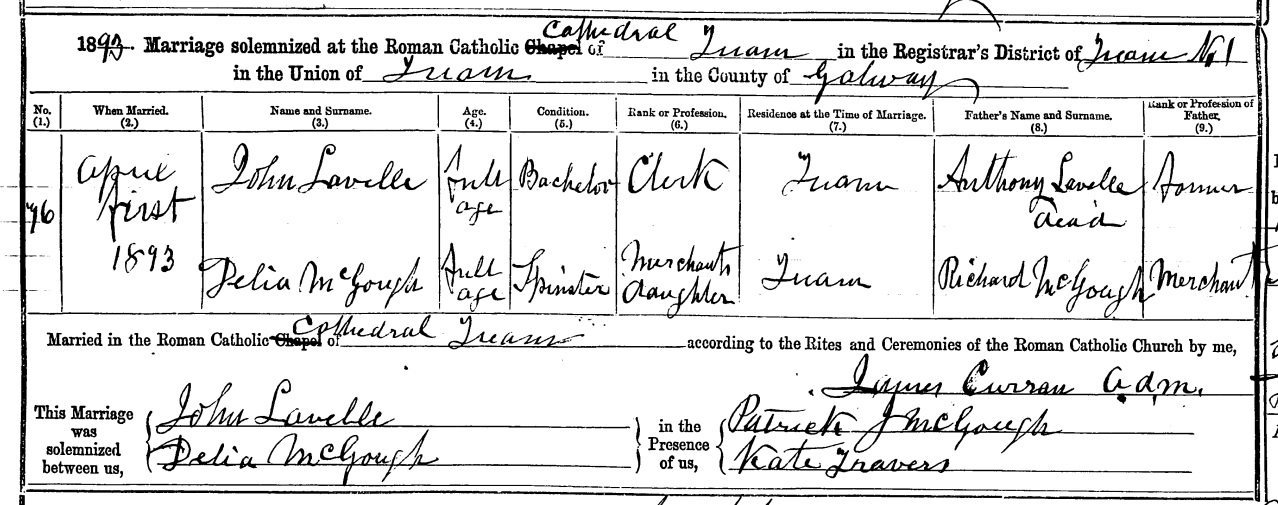 1893. Marriage solemnized at the Roman Catholic Chapel of Cathedral Tuam in the Registrar's District of Tuam No 1
in the Union of Tuam in the County of Galway
No. (1.) When Married. (2.) Name and Surname. (3.) Age. (4.) Condition. (5.) Rank or Profession. (6.) Residence at the Time of Marriage. (7.) Father's Name and Surname. (8.) Rank or Profession of Father. (9.)
76 April first 1893 John Lavelle full age Bachelor Clerk Tuam Anthony Lavelle dead Farmer
Delia McGough full age Spinster Merchants daughter Tuam Richard McGough Merchant
Married in the Roman Catholic Chapel of Cathedral Tuam according to the Rites and Ceremonies of the Roman Catholic Church by me,
James Curran Adm.
This Marriage was solemnized between us, John Lavelle
Delia McGough
in the Presence of us, Patrick J McGough
Kate Travers